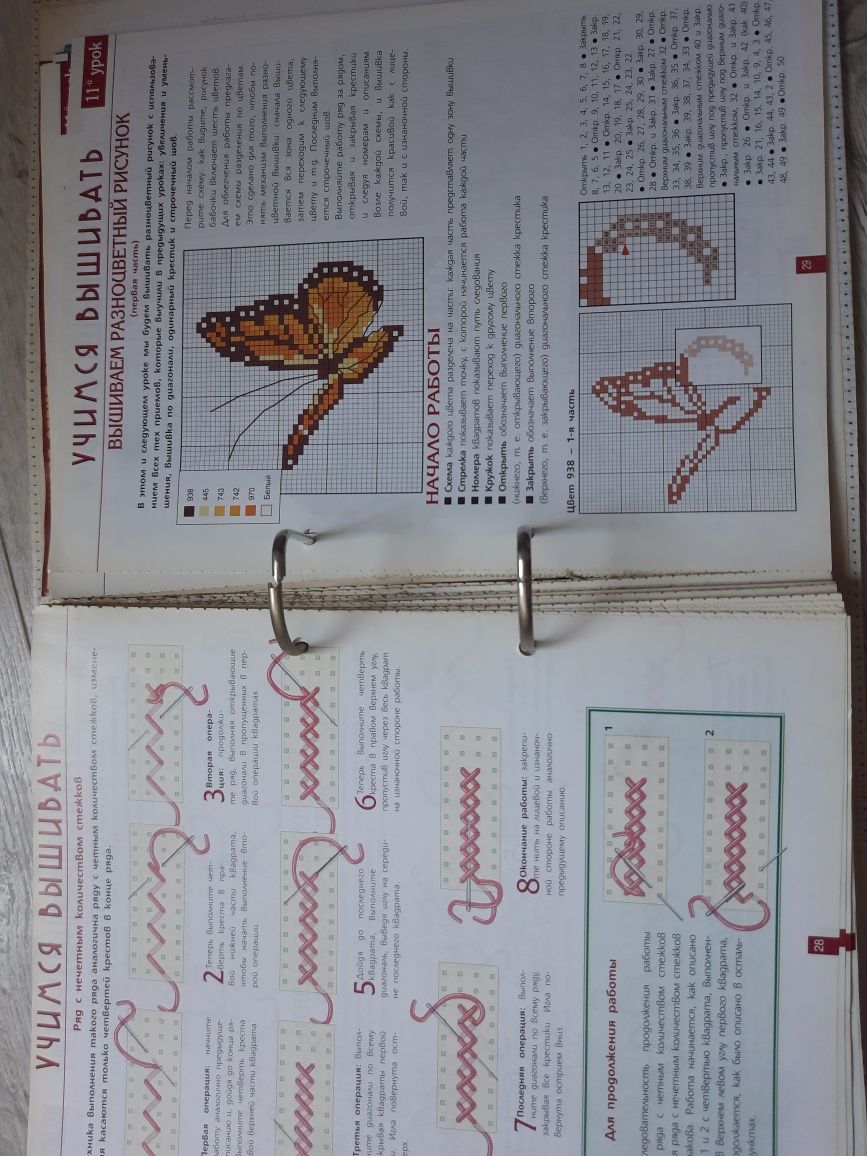 УЧИМСЯ ВЫШИВАТЬ
Ряд с нечетным количеством стежков
хника выполнения такого ряда аналогична ряду с четным количеством стежков, измене-
я касаются только четвертей крестов в конце ряда.
Первая операция: начните
работу аналогично предыдуще-
писанию и, дойдя до конца ря-
выполните четверть креста
вой верхней части квадрата
2 Теперь выполните чет-
верть креста в пра-
вой нижней части квадрата,
чтобы начать выполнение вто-
рой операции.
3 Вторая опера-
ция: продолжи-
те ряд, выполняя открывающие
диагонали в пропущенных в пер-
вой операции квадратах.
Третья операция: выпол-
ните диагонали по всему
крывая квадраты первой
и. Игла повернута ост-
ерх.
5 Дойдя до последнего
квадрата, выполните
диагональ, выведя иглу на середи-
не последнего квадрата.
6 Теперь выполните четверть
креста в правом верхнем углу,
пропустив иглу через весь квадрат
на изнаночной стороне работы.
7 Последняя операция: выпол-
ните диагонали по всему ряду,
закрывая все крестики. Игла по-
вернута острием вниз.
8 Окончание работы: закрепи-
те нить на лицевой и изнаноч-
ной стороне работы аналогично
предыдущему описанию.
Для продолжения работы
ледовательность продолжения работы
ряда с четным количеством стежков
я ряда с нечетным количеством стежков
накова. Работа начинается, как описано
1 и 2 с четвертью квадрата, выполнен-
в верхнем левом углу первого квадрата,
одолжается, как было описано в осталь-
унктах.
1
2
28
11й урок
УЧИМСЯ ВЫШИВАТЬ
ВЫШИВАЕМ РАЗНОЦВЕТНЫЙ РИСУНОК
(первая часть)
В этом и следующем уроке мы будем вышивать разноцветный рисунок с использова-
нием всех тех приемов, которые выучили в предыдущих уроках: увеличения и умень-
шения, вышивка по диагонали, одинарный крестик и строчечный шов.
938
445
743
742
970
Белый
Перед началом работы рассмот-
рите схему: как видите, рисунок
бабочки включает шесть цветов.
Для облегчения работы предлага-
ем схемы разделения по цветам.
Это сделано для того, чтобы по-
нять механизм выполнения разно-
цветной вышивки: сначала выши-
вается вся зона одного цвета,
затем переходим к следующему
цвету и т.д. Последним выполня-
ется строчечный шов.
Выполняйте работу ряд за рядом,
открывая и закрывая крестики
и следуя номерам и описаниям
возле каждой схемы, и вышивка
получится красивой как с лице-
вой, так и с изнаночной стороны.
НАЧАЛО РАБОТЫ
■ Схема каждого цвета разделена на части: каждая часть представляет одну зону вышивки
■ Стрелка показывает точку, с которой начинается работа каждой части
■ Номера квадратов показывают путь следования
■ Кружок показывает переход к другому цвету
■ Открыть обозначает выполнение первого
(нижнего, т. е. открывающего) диагонального стежка крестика
■ Закрыть обозначает выполнение второго
(верхнего, т. е. закрывающего) диагонального стежка крестика
Цвет 938 – 1-я часть
Открыть 1, 2, 3, 4, 5, 6, 7, 8 ● Закрыть
8, 7, 6, 5 ● Откр. 9, 10, 11, 12, 13 ● Закр.
13, 12, 11 ● Откр. 14, 15, 16, 17, 18, 19,
20 ● Закр. 20, 19, 18, 17 ● Откр. 21, 22,
23, 24, 25 ● Закр. 25, 24, 23, 22
● Откр. 26, 27, 28, 29, 30 ● Закр. 30, 29,
28 ● Откр. и закр. 31 ● Закр. 27 ● Откр.
верхним диагональным стежком 32 ● Откр.
33, 34, 35, 36 ● Закр. 36, 35 ● Откр. 37,
38, 39 ● Закр. 39, 38, 37, 34, 33 ● Откр.
верхним диагональным стежком 40 и закр.
пропустив иглу под предыдущей диагональю
● Закр., пропустив иглу под верхним диаго-
нальным стежком, 32 ● Откр. и закр. 41
● Закр. 26 ● Откр. и закр. 42 (как 40)
● Закр. 21, 16, 15, 14, 10, 9, 4, 3 ● Откр.
43, 44 ● Закр. 44, 43, 2 ● Откр. 45, 46, 47,
48, 49 ● Закр. 49 ● Откр. 50
29